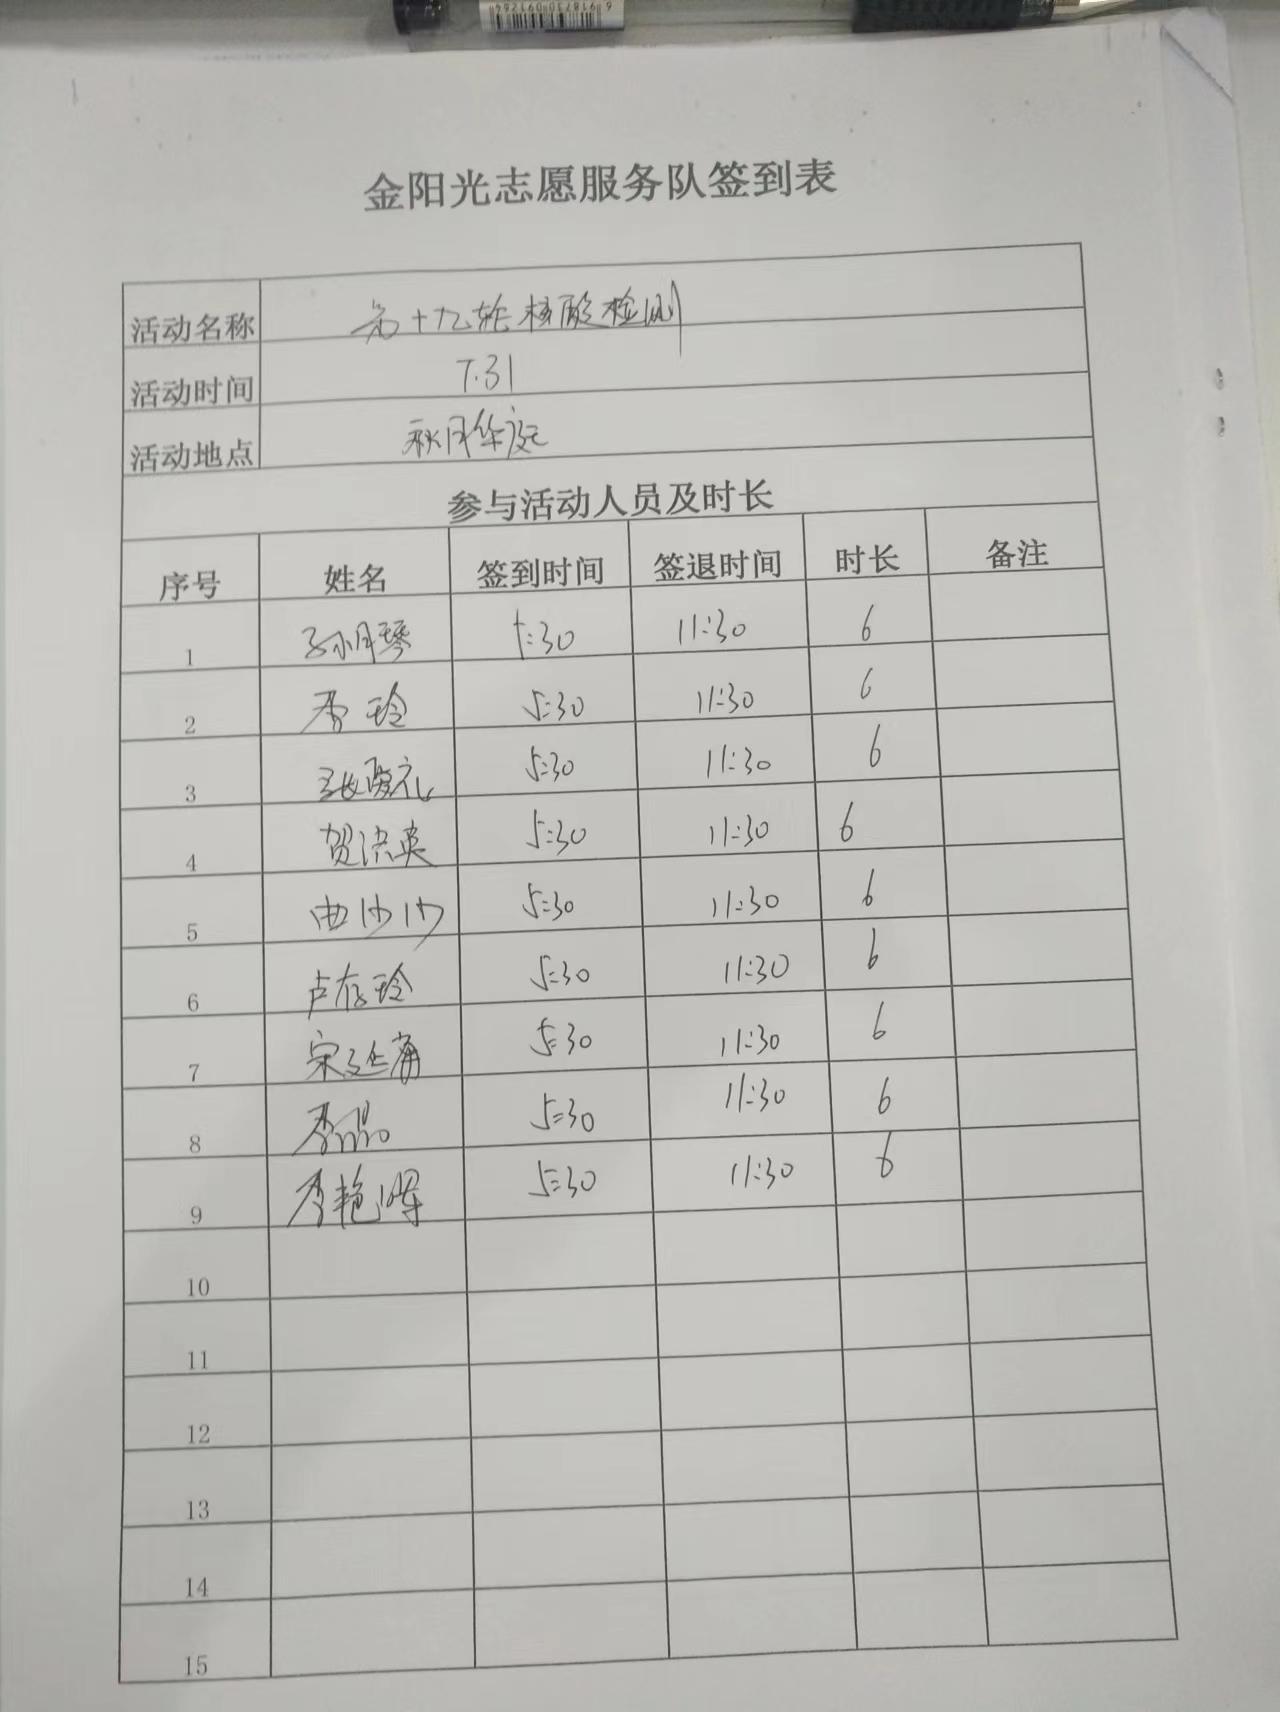 金阳光志愿服务队签到表
活动名称 第十九轮核酸检测
活动时间 7.31
活动地点 秋月华庭
参与活动人员及时长
序号 姓名 签到时间 签退时间 时长 备注
1 孙月琴 5:30 11:30 6
2 李玲 5:30 11:30 6
3 5:30 11:30 6
4 贺洪英 5:30 11:30 6
5 曲沙沙 5:30 11:30 6
6 卢存玲 5:30 11:30 6
7 5:30 11:30 6
8 李晶 5:30 11:30 6
9 李艳晖 5:30 11:30 6
10
11
12
13
14
15